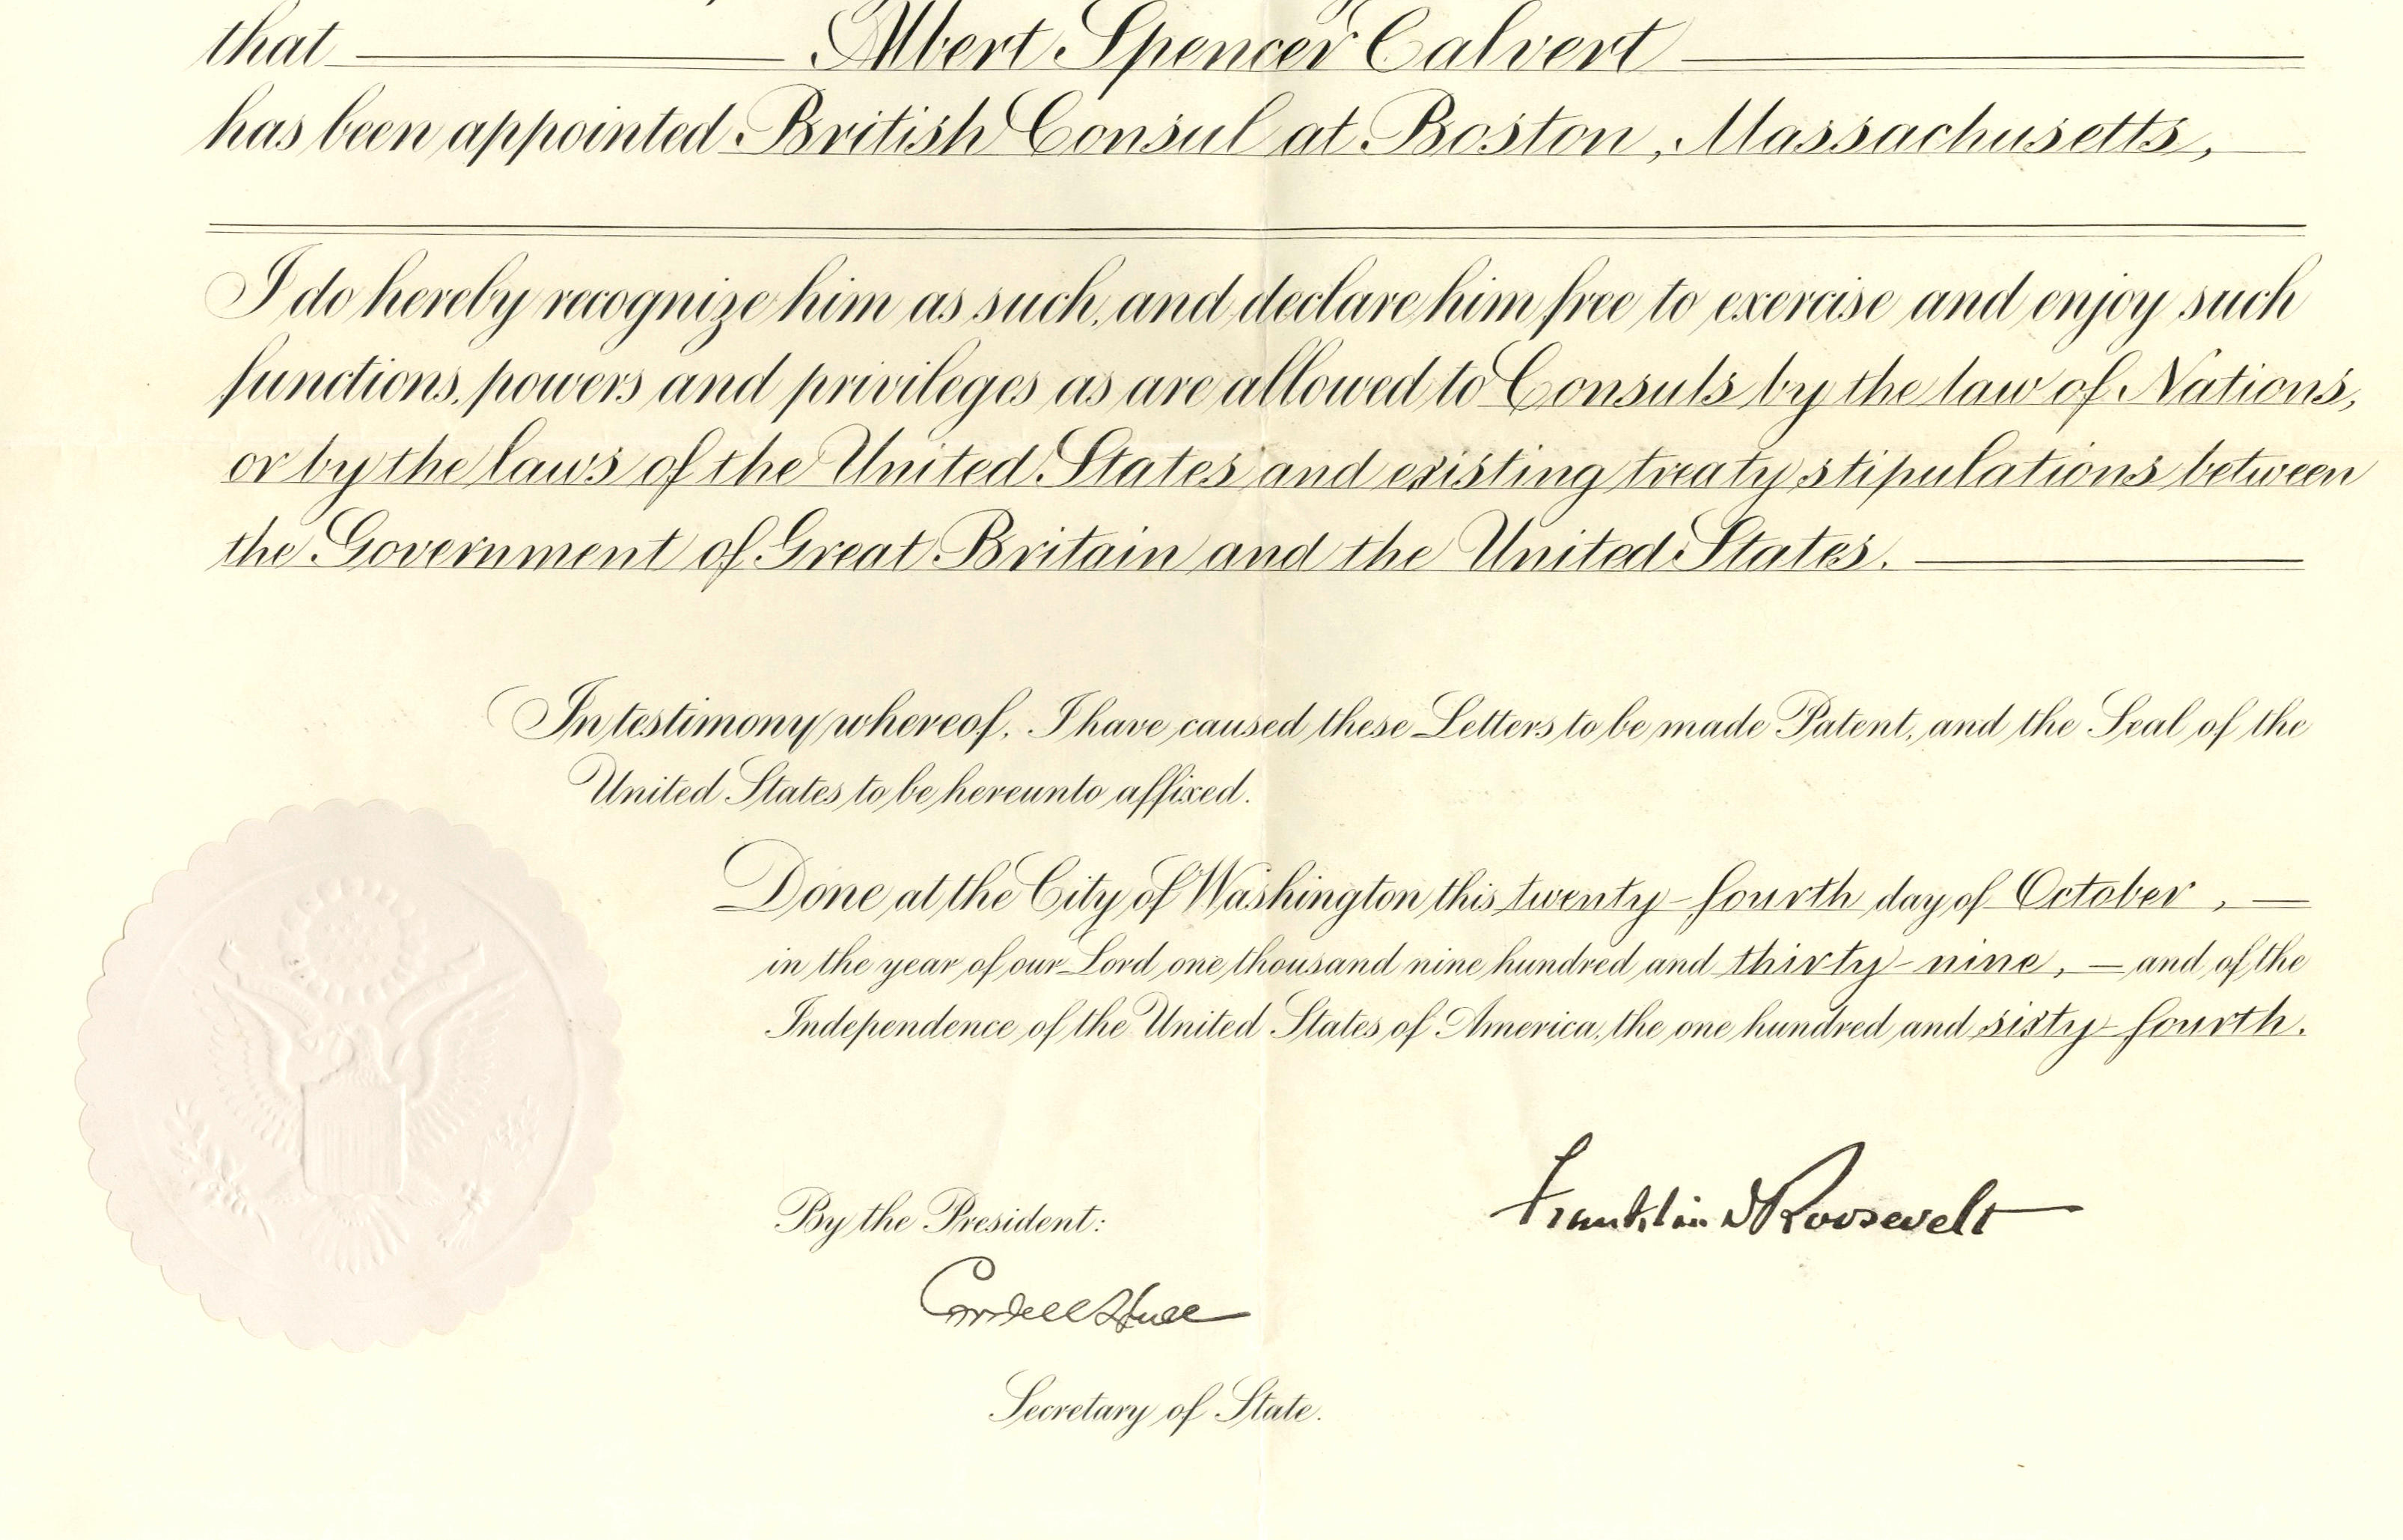 that Albert Spencer Calvert
has been appointed British Consul at Boston, Massachusetts,
I do hereby recognize him as such, and declare him free to exercise and enjoy such
functions, powers and privileges as are allowed to Consuls by the law of Nations,
or by the laws of the United States and existing treaty stipulations between
the Government of Great Britain and the United States.
In testimony whereof, I have caused these Letters to be made Patent, and the Seal of the
United States to be hereunto affixed.
Done at the City of Washington this twenty-fourth day of October,
in the year of our Lord one thousand nine hundred and thirty-nine, and of the
Independence of the United States of America, the one hundred and sixty-fourth.
Franklin D Roosevelt
By the President:
Cordell Hull
Secretary of State.